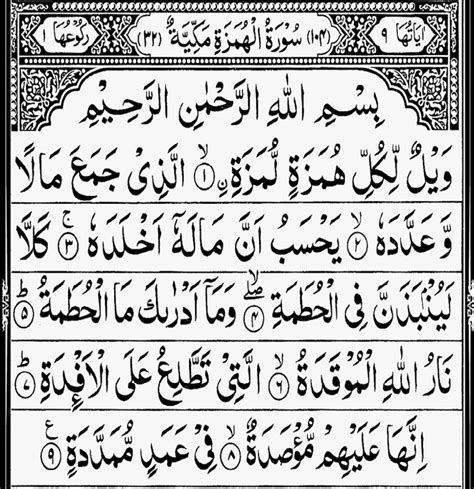 اٰیَاتُهَا ٩ (١٠٤) سُوْرَةُ الْهُمَزَةِ مَكِّيَّةٌ (٣٢) رُكُوْعُهَا ١
بِسْمِ اللهِ الرَّحْمٰنِ الرَّحِيْمِ
وَيْلٌ لِّكُلِّ هُمَزَةٍ لُّمَزَةِ ۙ﴿١﴾ ۨ الَّذِیْ جَمَعَ مَالًا
وَّ عَدَّدَهٗ ۙ﴿٢﴾ یَحْسَبُ اَنَّ مَالَهٗۤ اَخْلَدَهٗ ۚ﴿٣﴾ كَلَّا
لَیُنْۢبَذَنَّ فِی الْحُطَمَةِ ۖ﴿٤﴾ وَمَاۤ اَدْرٰىكَ مَا الْحُطَمَةُ ؕ﴿٥﴾
نَارُ اللهِ الْمُوْقَدَةُ ۙ﴿٦﴾ الَّتِیْ تَطَّلِعُ عَلَی الْاَفْـِٕدَةِ ؕ﴿٧﴾
اِنَّهَا عَلَیْهِمْ مُّؤْصَدَةٌ ۙ﴿٨﴾ فِیْ عَمَدٍ مُّمَدَّدَةٍ ﴿٩﴾ ع